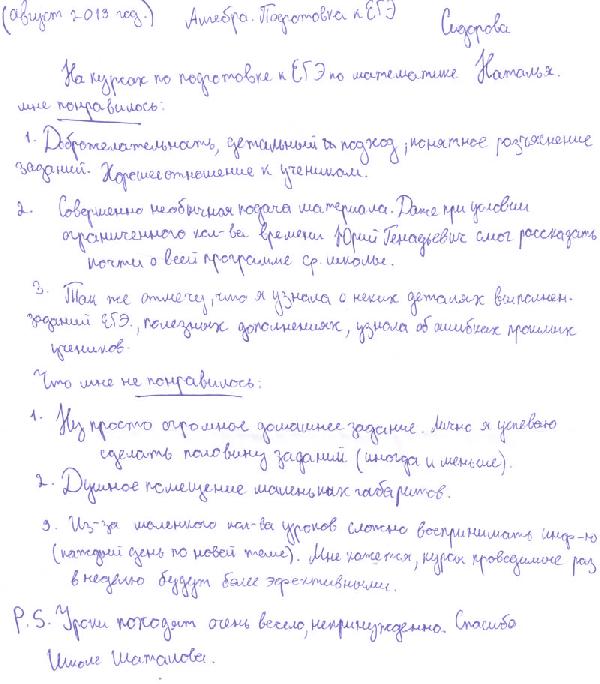 (август 2013 год.) Алгебра. Подготовка к ЕГЭ Сидорова
На курсах по подготовке к ЕГЭ по математике Наталья.
мне понравилось:
1. Доброжелательность, детальный подход, понятное разъяснение
заданий. Хорошее отношение к ученикам.
2. Совершенно необычная подача материала. Даже при условии
ограниченного кол-ва времени Юрий Генадьевич смог рассказать
почти о всей программе ср. школы.
3. Так же отмечу, что я узнала о неких деталях выполнен.
заданий ЕГЭ, полезных дополнениях, узнала об ошибках прошлых
учеников.
Что мне не понравилось:
1. Ну просто огромное домашнее задание. Лично я успеваю
сделать половину заданий (иногда и меньше).
2. Душное помещение маленьких габаритов.
3. Из-за маленького кол-ва уроков сложно воспринимать инф-ю
(каждый день по новой теме). Мне кажется, курсы проводимые раз
в неделю будут более эфективными.
P.S. Уроки походят очень весело, непринужденно. Спасибо
Школе Шаталова.